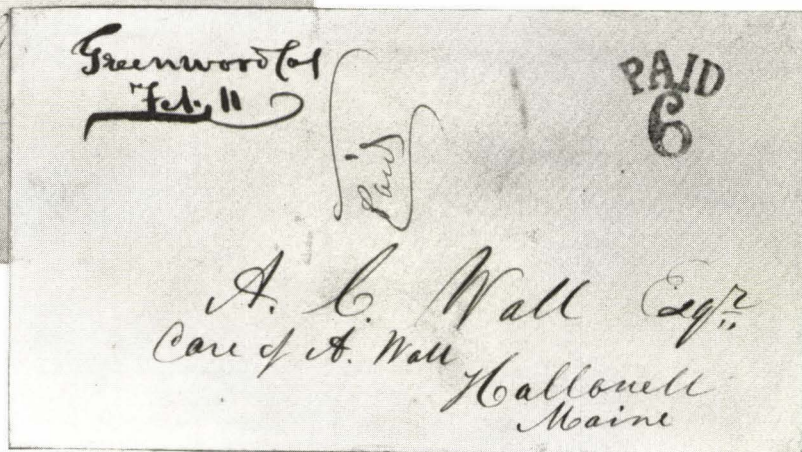 Greenwood Cal
Feb. 11
Paid
PAID
6
A. C. Wall Esqr.
Care of A. Wall
Hallowell
Maine